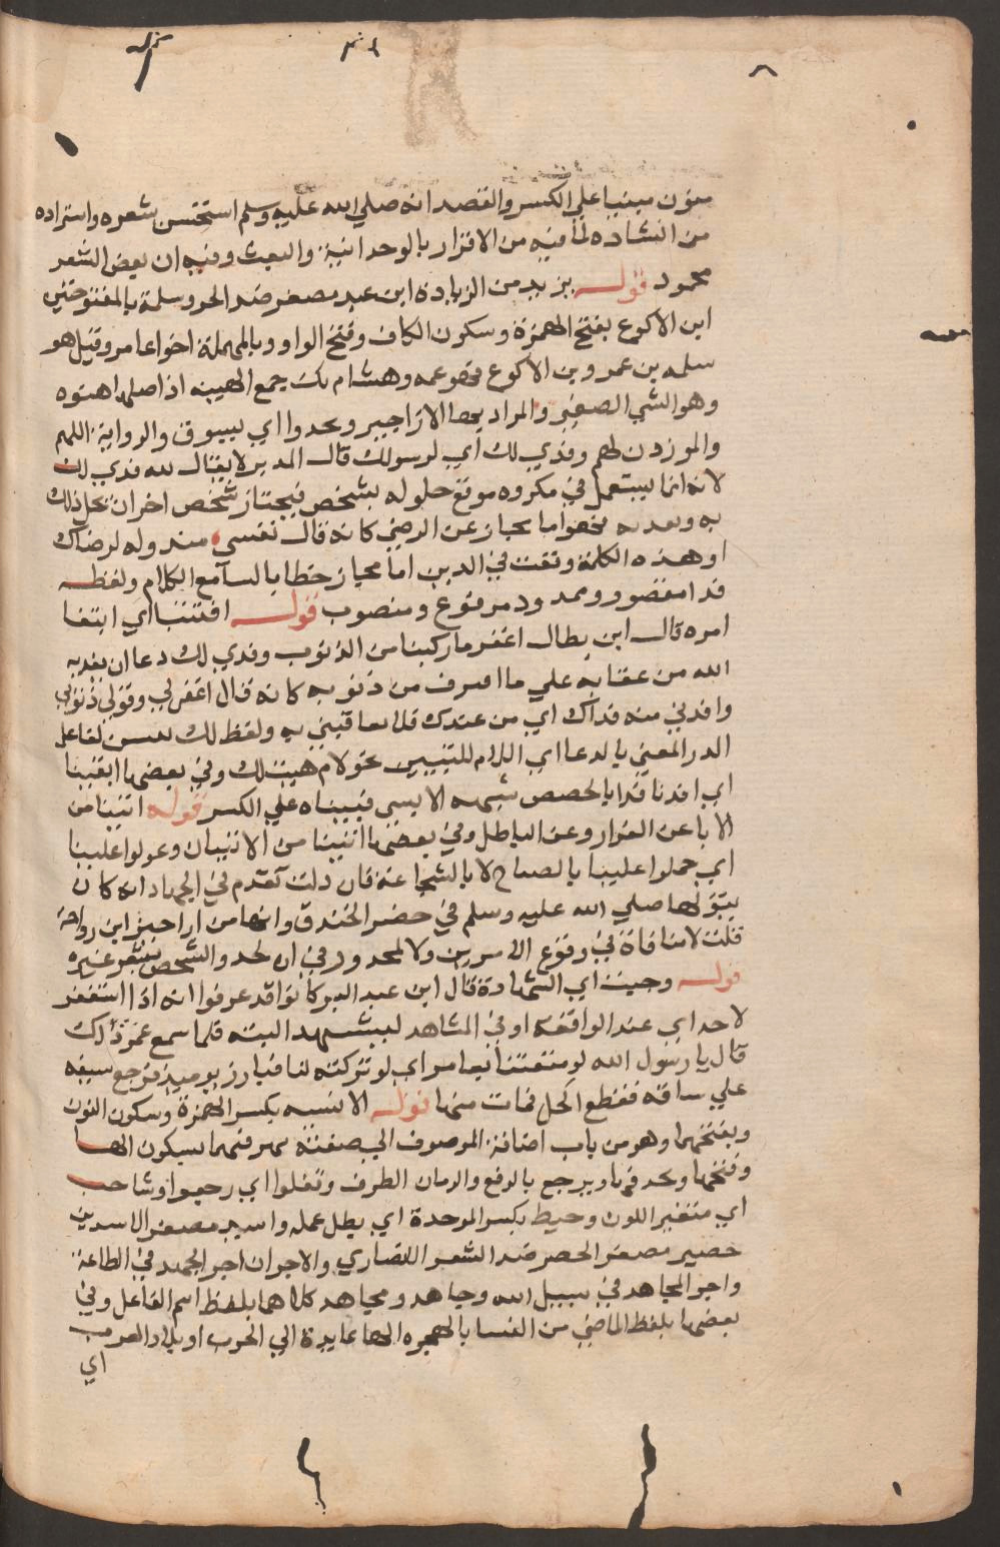 منون مبنيا علي الكسر والقصد انه صلي الله عليه وسلم استحسن شعره واستزاده
من انشاده لما فيه من الاقرار بالوحدانية والبعث وفيه ان بعض الشعر
محمود قوله يزيد من الزيادة ابن عبيد مصغر ضد الحر وسلمة بالمفتوحتين
ابن الاكوع بفتح الهمزة وسكون الكاف وفتح الواو وبالمهملة اخوا عامر وقيل هو
سلمه بن عمرو بن الاكوع فهو عمه وهشام بك جمع الهينه اذ اصلها هنوه
وهو الشي الصغير والمراد بها الاراجيز ويحدوا اي يسوق والرواية اللهم
والموزون لهم وفدي لك اي لرسولك قال المديز لا يقال لله فدي لك
لانه انما يستعمل في مكروه موقع حلوله بشخص فيختار شخص اخر ان يحل ذلك
به ويفديه فهو اما مجاز عن الرضي كانه قال نفسي مبذوله لرضاك
او هذه الكلمة وقعت في البين اما مجاز خطابا لسامع الكلام ولفظ
فدا مقصور وممدود مرفوع ومنصوب قوله اقتفينا اي ابتغا
امره قال ابن بطال اغفر ما ركبنا من الذنوب وفدي لك دعا ان يفديه
الله من عقابه علي ما اقترف من ذنوبه كانه قال اغفر لي وقولي ذنوبي
وافدني منه فداك اي من عندك فلا تعاقبني به ولفظ لك
المعني بالدعا اي اللام للتبيين نحو لام هيت لك وفي بعضها ابقينا
اي افدنا فدا بالحصص الا يسي فبيناه علي الكسر قوله اتينا من
الابا عن الفرار وعن الباطل وفي بعضها اتينا من الاتيان وعولوا علينا
اي حملوا علينا بالصياح لا بالشجاعة فان قلت تقدم في الجهاد انه كان
يتولها صلي الله عليه وسلم في حفر الخندق وانها من اراجيز ابن رواحة
قلت لا منافاة في وقوع الامرين ولا لمحدور في ان يحدو الشخص بشعر غيره
قوله وجبت اي الشهادة قال ابن عبد البر كانوا قد عرفوا انه اذا استغفر
لاحد اي عند الواقعة او في المشاهد ليستشهد البته فلما سمع عمر ذلك
قال يا رسول الله لو متعتنا بعامر اي لو تركته لنا فبارز يوميذ فرجع سيفه
علي ساقه فقطع الحل فمات منها قوله الانسيه بكسر الهمزة وسكون النون
وبفتحهما وهو من باب اضافة الموصوف الي صفته نهرقهما بسكون الها
وفتحها وبحذفها ويرجع بالرفع والرمان الطرف وقفلوا اي رجعوا وشاحب
اي متغير اللون وحبط بكسر الموحدة اي بطل عمله واسيد مصغر الاسد بن
حضير مصغر الحضر ضد السفر الانصاري والاجران اجر الجهد في الطاعة
واجر المجاهد في سبيل الله وجاهد ومجاهد كلاهما بلفظ اسم الفاعل وفي
بعضها بلفظ الماضي من النسا بالهمزه الها عايدة الي الحرب او بلاد العرب
اي